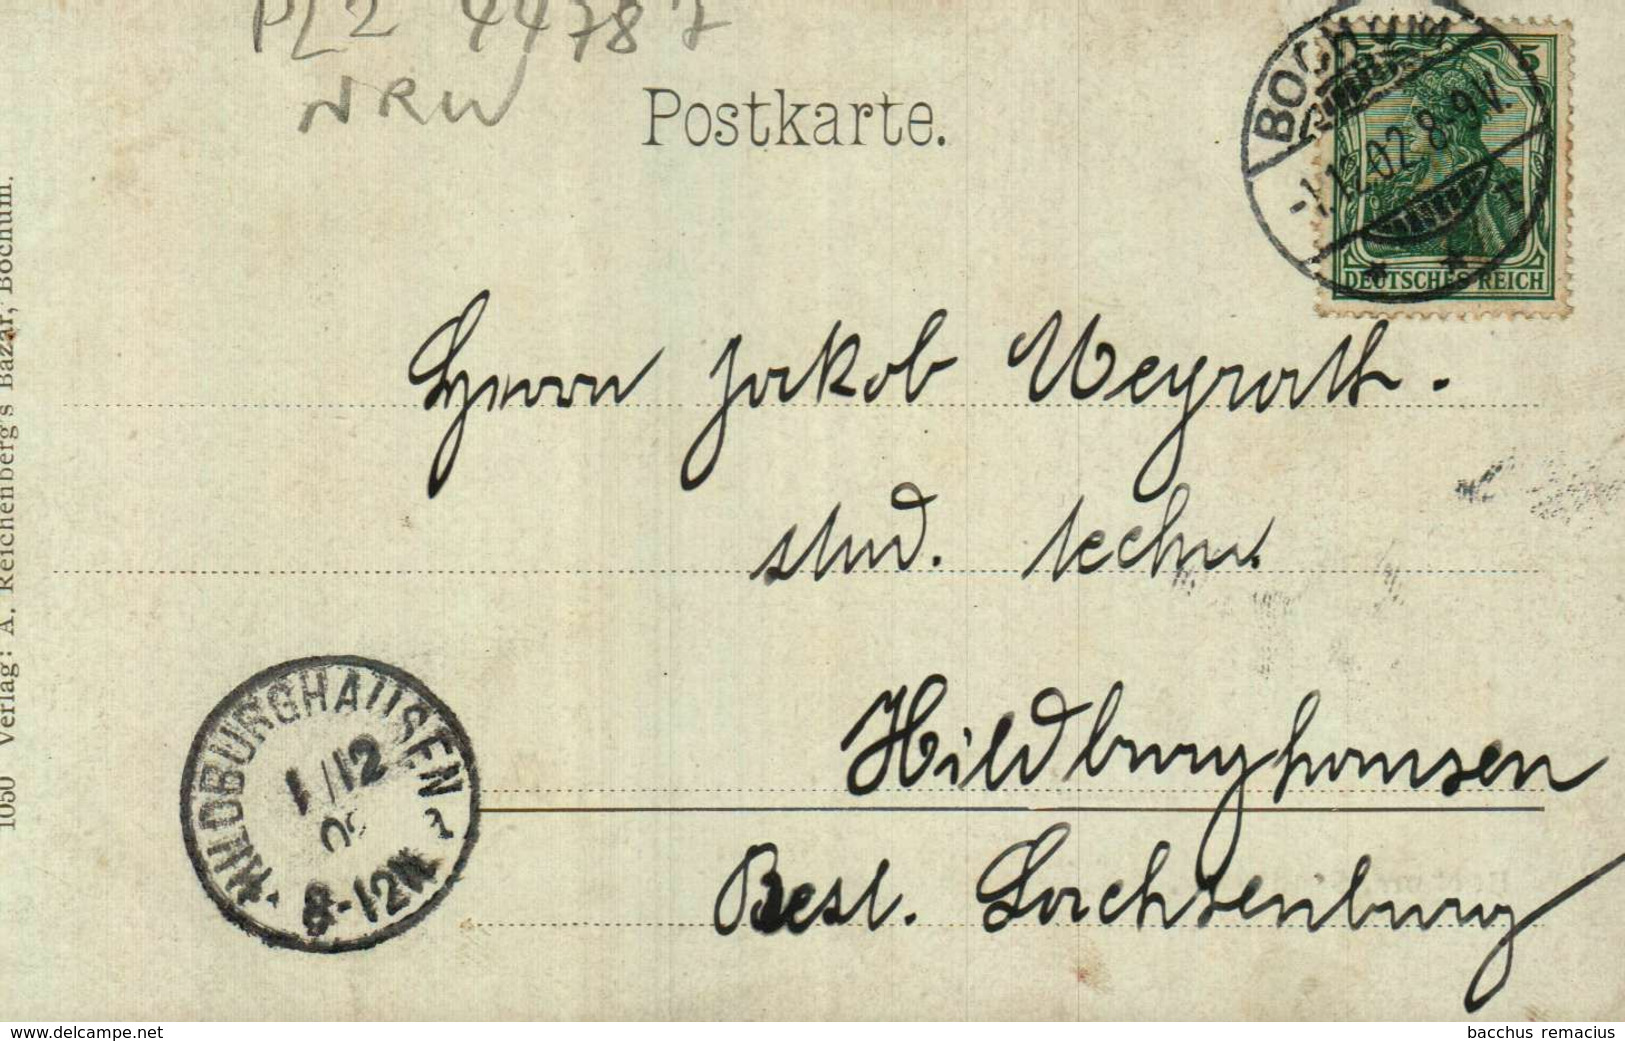 PLZ 44787
NRW
Postkarte.
BOCHUM
-1.12.02.8-9V.
r
5
DEUTSCHES REICH
1050 Verlag: A. Reichenberg's Bazar, Bochum.
Herrn Jakob Weyrath.
stud. techn.
Hildburghausen
Rest. Sachsenburg
HILDBURGHAUSEN
1/12
8-12N
www.delcampe.net
bacchus remacius